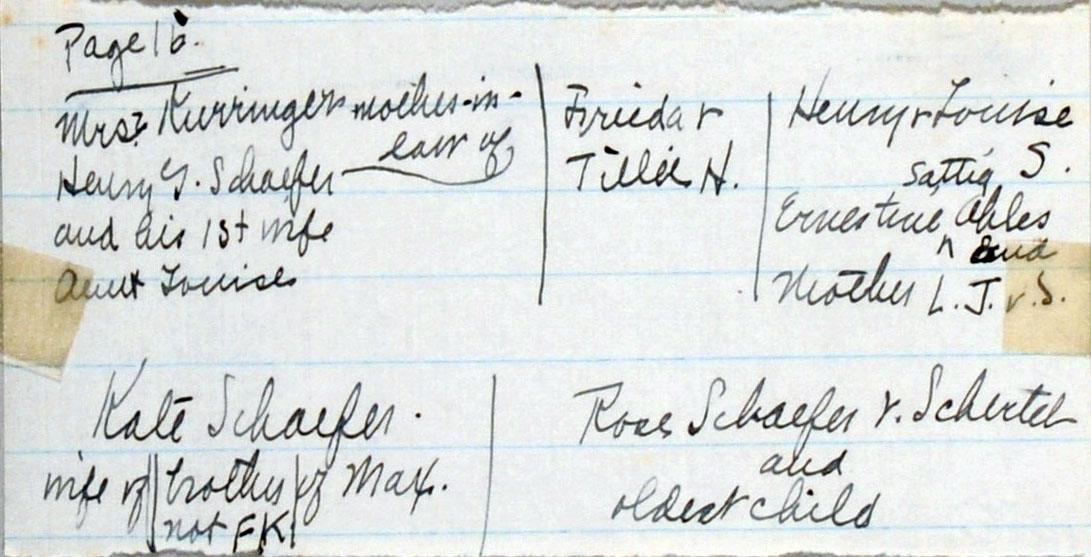 Page 16.
Mrs. Kurringer mother-in-
law of
Henry G. Schaefer
and his 1st wife
Aunt Louise
Frieda &
Tillie H.
Henry & Louise
S.
Sattig
Ernestine ^ Ahles
and
Mother L. J. v. S.
Kate Schaefer.
wife of brother of Max.
not F.K.
Rose Schaefer v. Schertel
and
oldest child